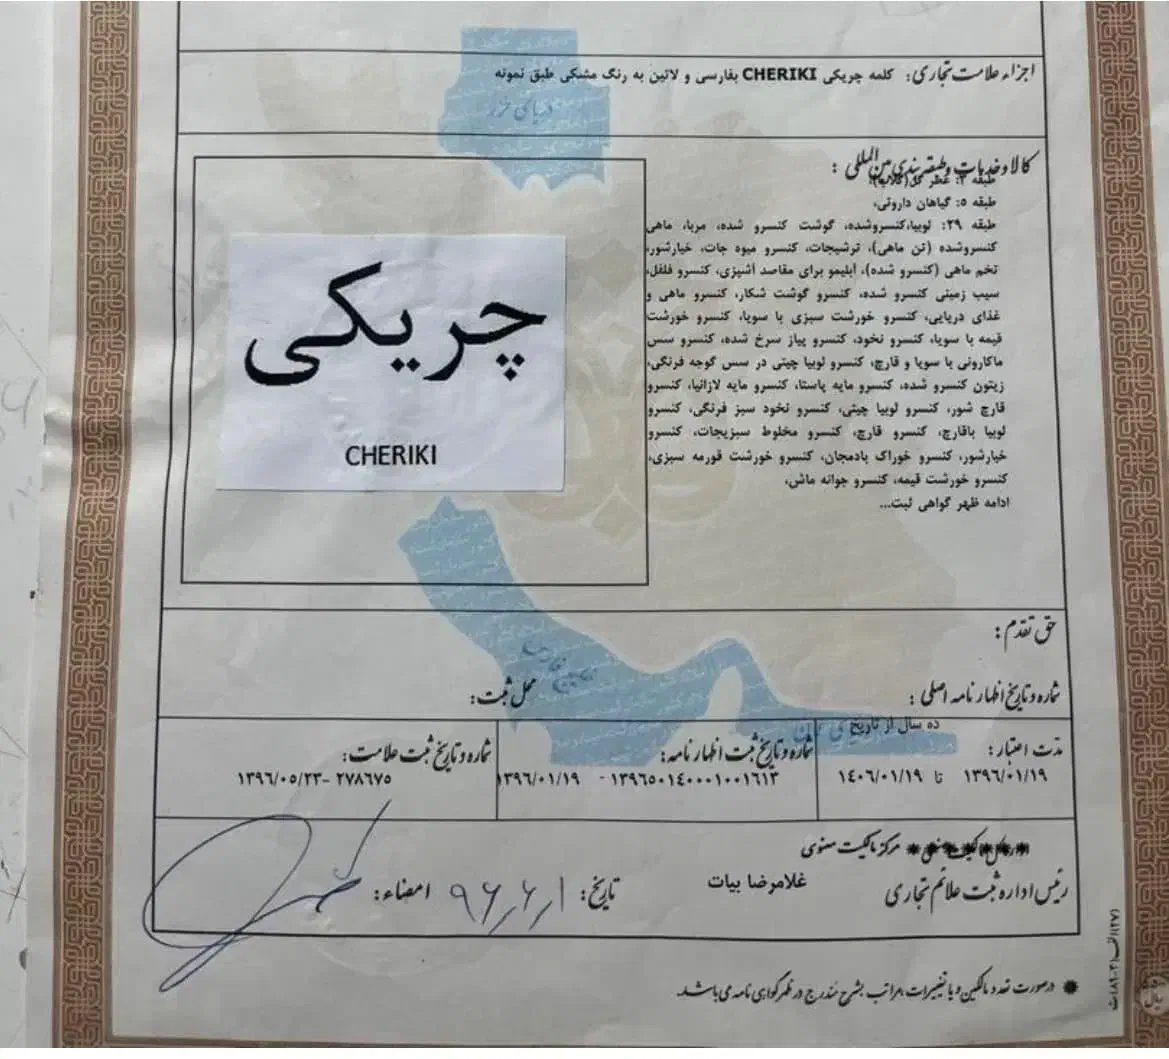 اجزاء علامت تجاری: کلمه چریکی CHERIKI بفارسی و لاتین به رنگ مشکی طبق نمونه
دریای خزر
کالا و خدمات و طبقه بندی بین المللی:
طبقه ۳: عطر گل (گلاب)؛
طبقه ۵: گیاهان داروئی،
طبقه ۲۹: لوبیا،کنسروشده، گوشت کنسرو شده، مربا، ماهی
کنسروشده (تن ماهی)، ترشیجات، کنسرو میوه جات، خیارشور،
تخم ماهی (کنسرو شده)، آبلیمو برای مقاصد آشپزی، کنسرو فلفل،
سیب زمینی کنسرو شده، کنسرو گوشت شکار، کنسرو ماهی و
غذای دریایی، کنسرو خورشت سبزی با سویا، کنسرو خورشت
قیمه با سویا، کنسرو نخود، کنسرو پیاز سرخ شده، کنسرو سس
ماکارونی با سویا و قارچ، کنسرو لوبیا چیتی در سس گوجه فرنگی،
زیتون کنسرو شده، کنسرو مایه پاستا، کنسرو مایه لازانیا، کنسرو
قارچ شور، کنسرو لوبیا چیتی، کنسرو نخود سبز فرنگی، کنسرو
لوبیا باقارچ، کنسرو قارچ، کنسرو مخلوط سبزیجات، کنسرو
خیارشور، کنسرو خوراک بادمجان، کنسرو خورشت قورمه سبزی،
کنسرو خورشت قیمه، کنسرو جوانه ماش،
ادامه ظهر گواهی ثبت...
چریکی
CHERIKI
حق تقدم:
شماره و تاریخ اظهارنامه اصلی:
محل ثبت:
مدت اعتبار: ده سال از تاریخ
۱۳۹۶/۰۱/۱۹ تا ۱۴۰۶/۰۱/۱۹
شماره و تاریخ ثبت اظهارنامه:
۱۳۹۶۵۰۱۴۰۰۰۱۰۰۱۶۱۳ - ۱۳۹۶/۰۱/۱۹
شماره و تاریخ ثبت علامت:
۲۷۸۶۷۵ -۱۳۹۶/۰۵/۲۳
مرکز مالکیت معنوی
رئیس اداره ثبت علائم تجاری
غلامرضا بیات
تاریخ: ۹۶/۶/۱
امضاء:
درصورت تعدد مالکین و یا تغییرات، مراتب بشرح مندرج در ظهر گواهی نامه می باشد.